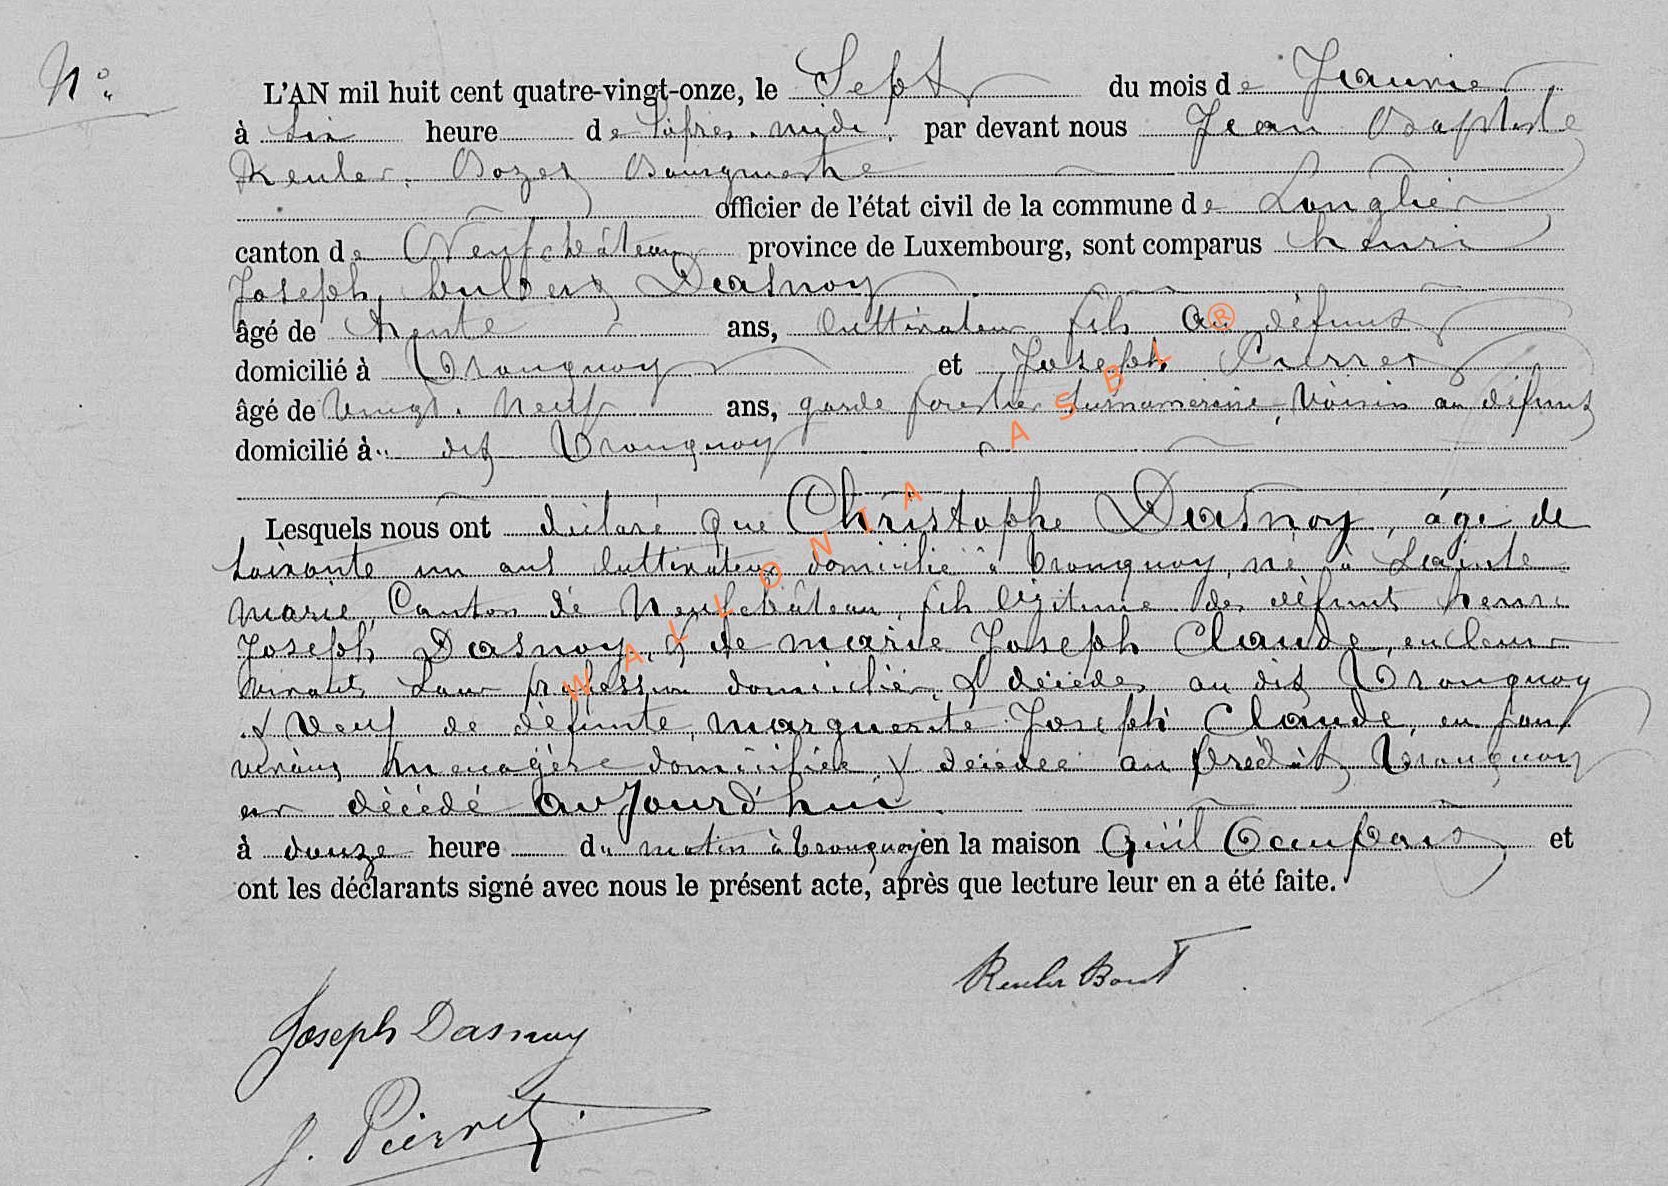 N°
L'AN mil huit cent quatre-vingt-onze, le Sept du mois de Janvier
à Six heure de l'après-midi. par devant nous Jean Baptiste
Reuler, Bourgmestre
officier de l'état civil de la commune de Longlier
canton de Neufchâteau province de Luxembourg, sont comparus henri
Joseph, Dasnoy
âgé de trente ans, Cultivateur fils au défunt
domicilié à Tronquoy et Joseph Pierret
âgé de Vingt-Neuf ans, garde forestier Surnuméraire, Voisin au défunt
domicilié à dit Tronquoy
Lesquels nous ont déclaré que Christophe Dasnoy, âgé de
Soixante un ans Cultivateur domicilié à Tronquoy, né à Sainte
marie, Canton de Neufchâteau, fils légitime des défunts henri
Joseph Dasnoy, & de marie Joseph Claude, en leur
vivants Sans profession domiciliés, & décédés au dit Tronquoy
& Veuf de défunte, marguerite Joseph Claude, en son
vivant, ménagère domiciliée, & décédée au prédit, Tronquoy
est décédé aujourd'hui
à douze heure du matin à Tronquoy en la maison qu'il occupait et
ont les déclarants signé avec nous le présent acte, après que lecture leur en a été faite.
Reuler
Joseph Dasnoy
J. Pierret
WALLONIA ASBL ®